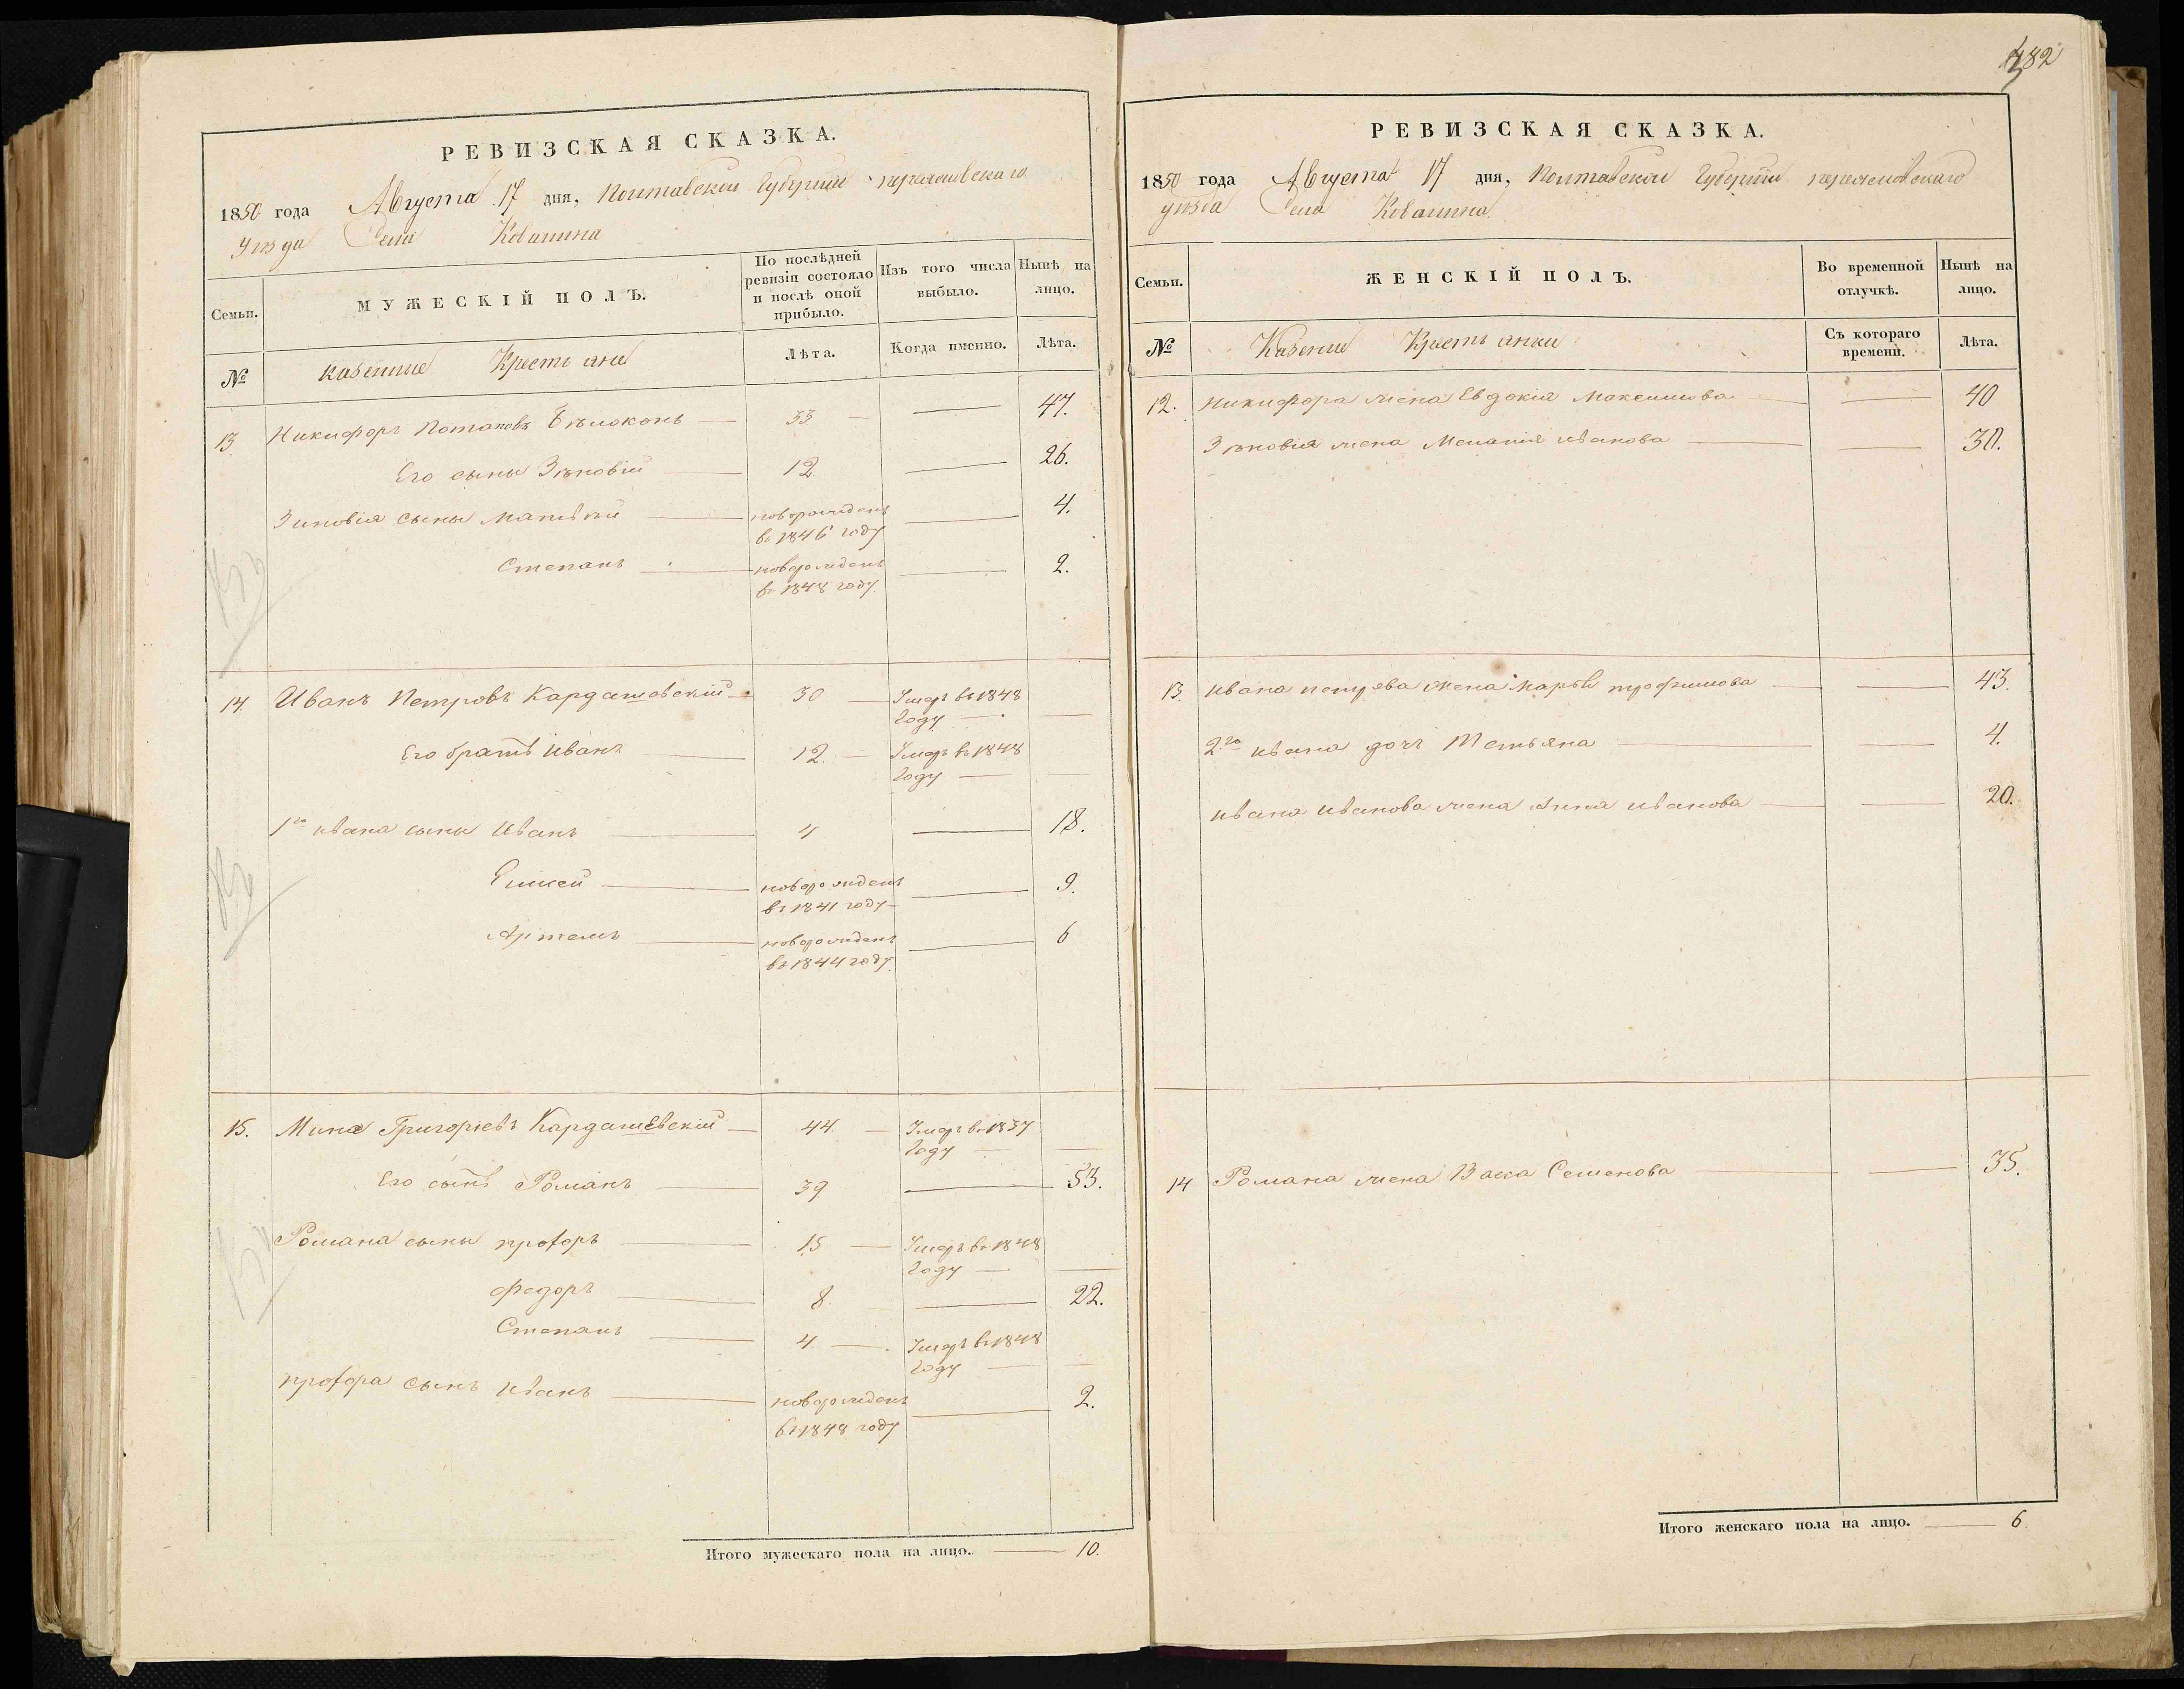 РЕВИЗСКАЯ СКАЗКА.
1850 года Августа 17 дня, Полтавской Губернии переяславскаго
Уѣзда Села Ковалина
Семьи.
МУЖЕСКІЙ ПОЛЪ.
По послѣдней ревизіи состояло и послѣ оной прибыло.
Изъ того числа выбыло.
Нынѣ на лицо.
№
казенные Крестьяне
Лѣта.
Когда именно.
Лѣта.
13 Никифоръ Потаповъ Бѣлоконь 33 47.
Его сыны Зѣновій 12 26.
Зиновія сыны Матвѣй новорожденъ 4.
въ 1846 году
Степанъ новорожденъ 2.
въ 1848 году
14. Иванъ Петровъ Кардашевскій 30 Умеръ въ 1848
году
Его братъ Иванъ 12. Умеръ въ 1848
году
1го ивана сыны Иванъ 4 18.
новорожденъ 9.
въ 1841 году
Артемъ новорожденъ 6
въ 1844 году
15. Мина Григорьевъ Кардашевскій 44 Умеръ въ 1837
году
Его сынъ Романъ 39 53.
Романа сыны прохоръ 15 Умеръ въ 1848
году
Федоръ 8. 22.
Степанъ 4. Умеръ въ 1848
году
прохора сынъ Иванъ новорожденъ 2.
въ 1848 году
Итого мужескаго пола на лицо. 10.
382
РЕВИЗСКАЯ СКАЗКА.
1850 года Августа 17 дня, Полтавской Губерніи переяславскаго
уѣзда Села Ковалина
Семьи.
ЖЕНСКІЙ ПОЛЪ.
Во временной отлучкѣ.
Нынѣ на лицо.
№
Казенные Крестьянки
Съ котораго времени.
Лѣта.
12. Никифора жена Евдокія Максимова 40
Зѣновія жена Меланія иванова 30.
13. ивана петрова жена Марья трофимова 43.
2го ивана дочь Тетьяна 4.
ивана иванова жена Анна иванова 20.
14 Романа жена Васа Семенова 35.
Итого женскаго пола на лицо. 6